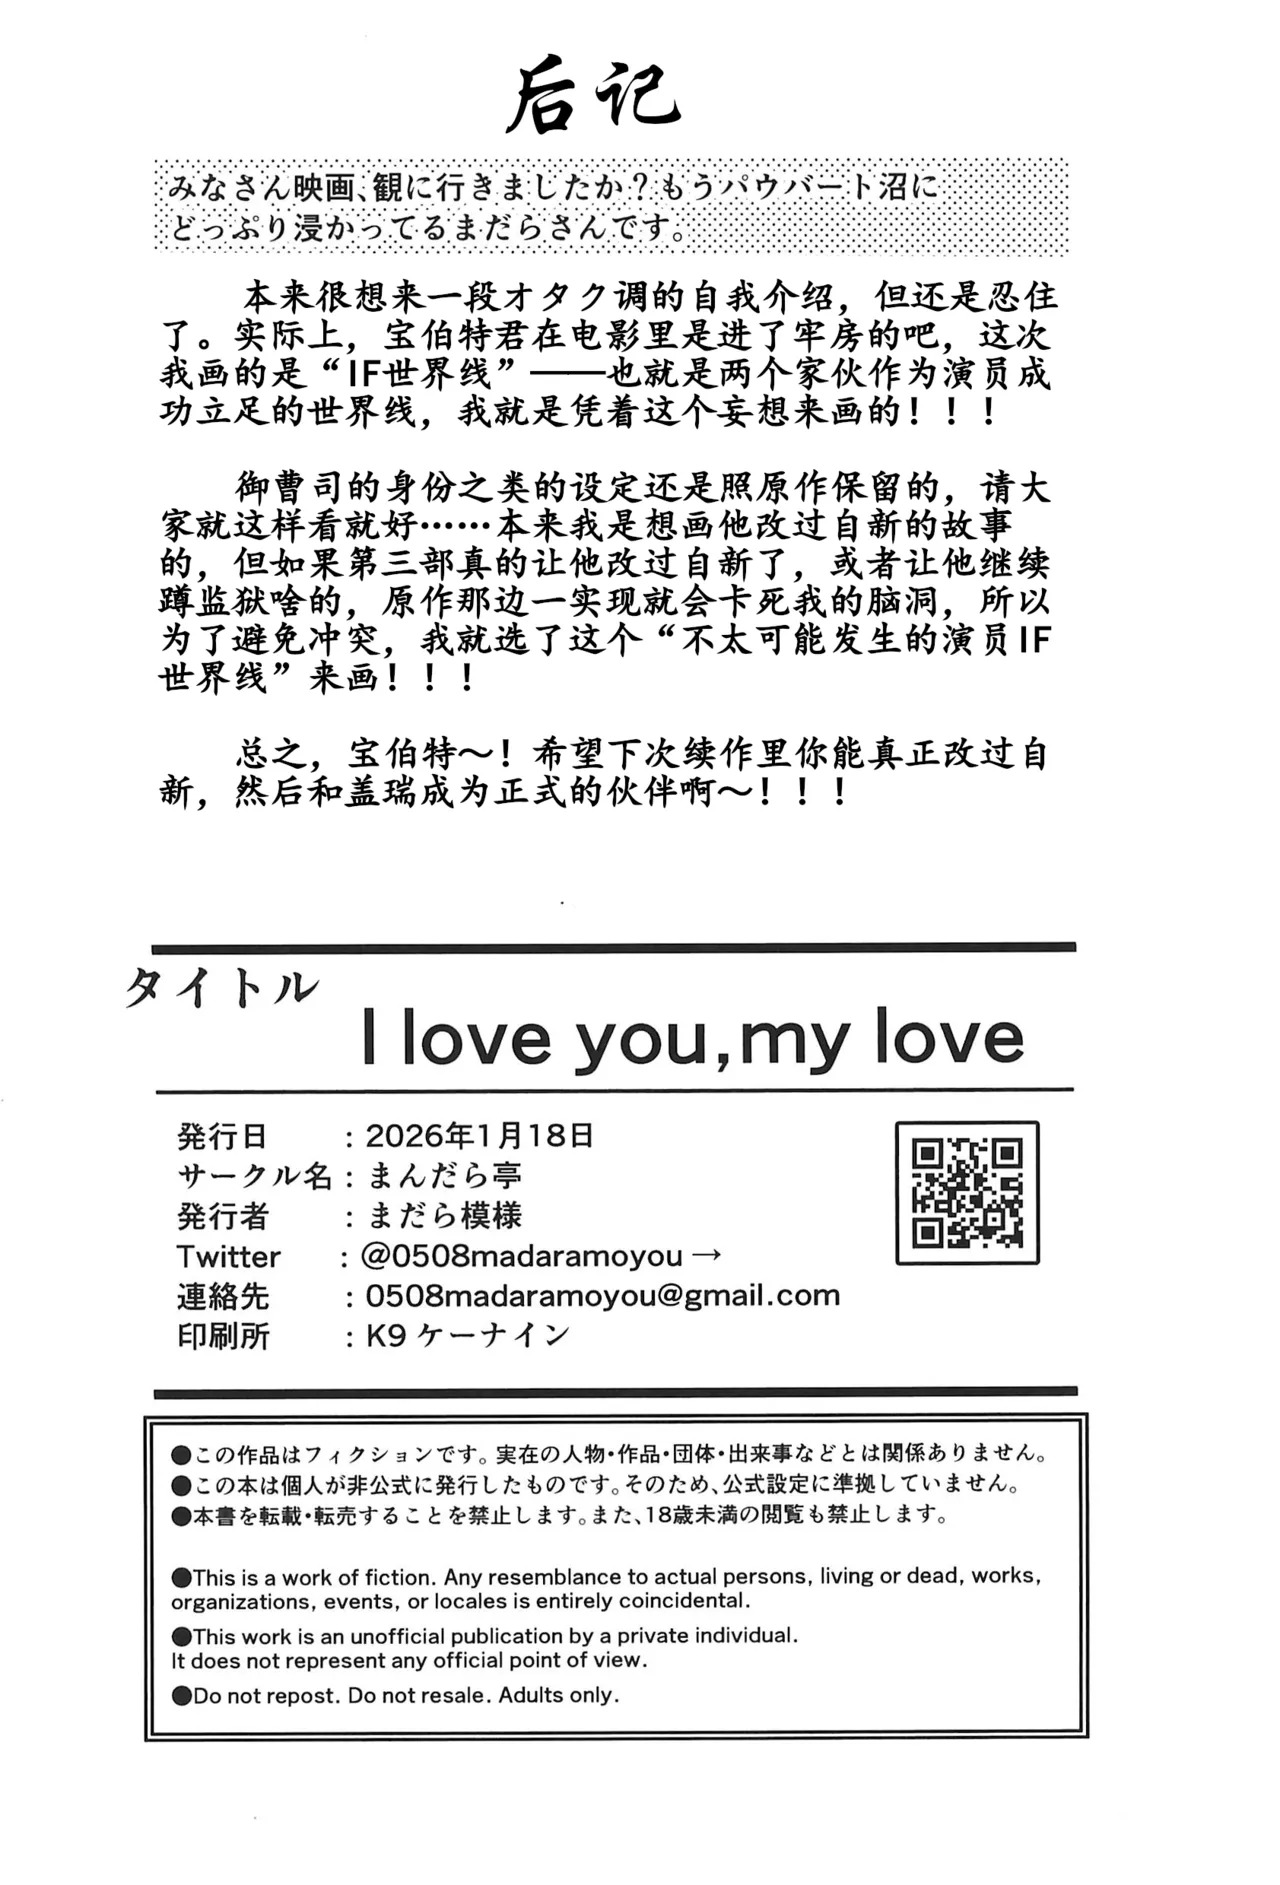 后记
みなさん映画、観に行きましたか？もうパウバート沼に
どっぷり浸かってるまだらさんです。
本来很想来一段オタク调的自我介绍，但还是忍住
了。实际上，宝伯特君在电影里是进了牢房的吧，这次
我画的是“IF世界线”——也就是两个家伙作为演员成
功立足的世界线，我就是凭着这个妄想来画的！！！
御曹司的身份之类的设定还是照原作保留的，请大
家就这样看就好……本来我是想画他改过自新的故事
的，但如果第三部真的让他改过自新了，或者让他继续
蹲监狱啥的，原作那边一实现就会卡死我的脑洞，所以
为了避免冲突，我就选了这个“不太可能发生的演员IF
世界线”来画！！！
总之，宝伯特～！希望下次续作里你能真正改过自
新，然后和盖瑞成为正式的伙伴啊～！！！
タイトル
I love you,my love
発行日 : 2026年1月18日
サークル名 : まんだら亭
発行者 : まだら模様
Twitter : @0508madaramoyou →
連絡先 : 0508madaramoyou@gmail.com
印刷所 : K9 ケーナイン
●この作品はフィクションです。実在の人物・作品・団体・出来事などとは関係ありません。
●この本は個人が非公式に発行したものです。そのため、公式設定に準拠していません。
●本書を転載・転売することを禁止します。また、18歳未満の閲覧も禁止します。
●This is a work of fiction. Any resemblance to actual persons, living or dead, works,
organizations, events, or locales is entirely coincidental.
●This work is an unofficial publication by a private individual.
It does not represent any official point of view.
●Do not repost. Do not resale. Adults only.